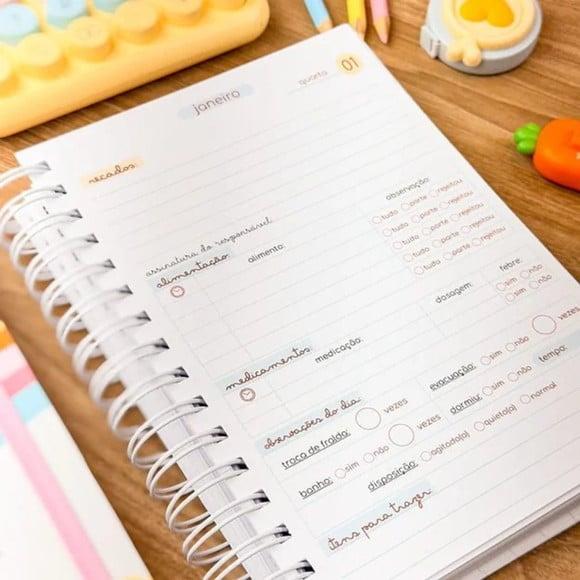 janeiro quarta 01
recados:
assinatura do responsável:
alimentação: alimento: observação:
tudo parte rejeitou
tudo parte rejeitou
tudo parte rejeitou
tudo parte rejeitou
tudo parte rejeitou
medicamentos: medicação: dosagem: febre:
sim não
sim não
observações do dia:
troca de fralda: vezes evacuação: sim não vezes
banho: sim não vezes dormiu: sim não tempo:
disposição: agitado(a) quieto(a) normal
itens para trazer: